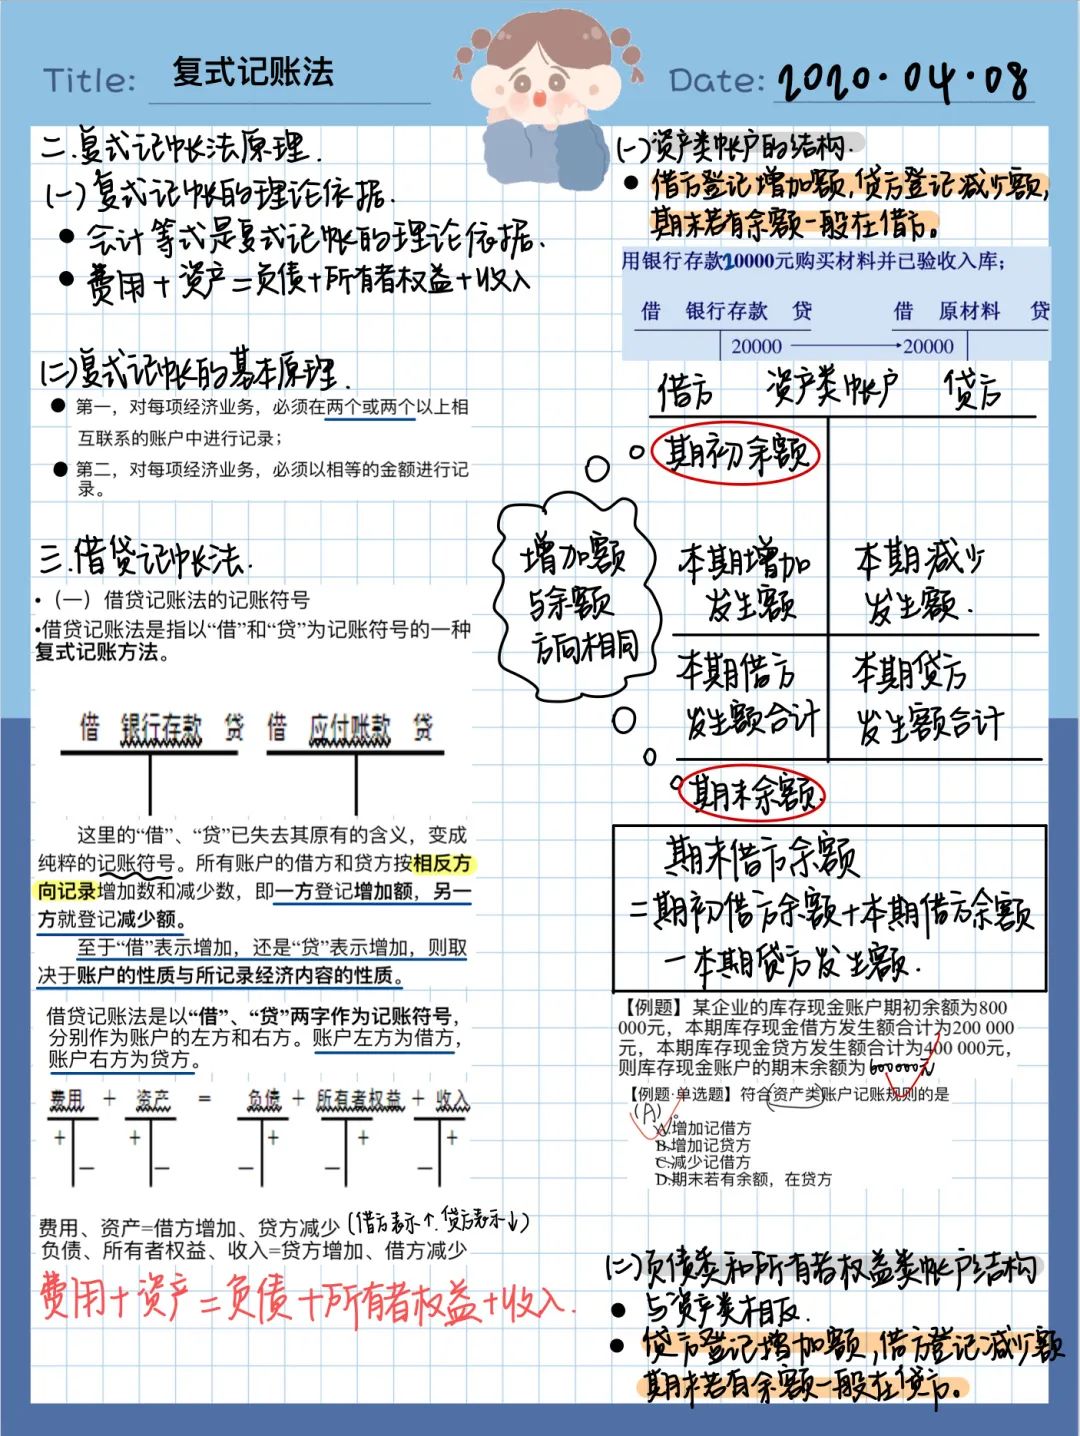 Title: 复式记账法
Date: 2020.04.08
二.复式记帐法原理.
(一)复式记帐的理论依据.
● 会计等式是复式记帐的理论依据.
● 费用+资产=负债+所有者权益+收入
(二)复式记帐的基本原理.
● 第一，对每项经济业务，必须在两个或两个以上相
互联系的账户中进行记录；
● 第二，对每项经济业务，必须以相等的金额进行记
录。
三.借贷记帐法.
•（一）借贷记账法的记账符号
•借贷记账法是指以“借”和“贷”为记账符号的一种
复式记账方法。
借 银行存款 贷 借 应付账款 贷
这里的“借”、“贷”已失去其原有的含义，变成
纯粹的记账符号。所有账户的借方和贷方按相反方
向记录增加数和减少数，即一方登记增加额，另一
方就登记减少额。
至于“借”表示增加，还是“贷”表示增加，则取
决于账户的性质与所记录经济内容的性质。
借贷记账法是以“借”、“贷”两字作为记账符号，
分别作为账户的左方和右方。账户左方为借方，
账户右方为贷方。
费用 + 资产 = 负债 + 所有者权益 + 收入
+ + + + +
— — — — —
费用、资产=借方增加、贷方减少(借方表示↑.贷方表示↓)
负债、所有者权益、收入=贷方增加、借方减少
费用+资产=负债+所有者权益+收入.
(一)资产类帐户的结构.
● 借方登记增加额,贷方登记减少额,
期末若有余额一般在借方。
用银行存款20000元购买材料并已验收入库；
借 银行存款 贷 借 原材料 贷
20000 20000
借方 资产类帐户 贷方
期初余额
增加额
与余额
方向相同
本期增加 本期减少
发生额 发生额.
本期借方 本期贷方
发生额合计 发生额合计
期末余额.
期末借方余额
=期初借方余额+本期借方余额
-本期贷方发生额.
【例题】某企业的库存现金账户期初余额为800
000元，本期库存现金借方发生额合计为200 000
元，本期库存现金贷方发生额合计为400 000元，
则库存现金账户的期末余额为600000元
【例题·单选题】符合资产类账户记账规则的是
(A)。
A.增加记借方
B.增加记贷方
C.减少记借方
D.期末若有余额，在贷方
(二)负债类和所有者权益类帐户结构
● 与资产类相反.
● 贷方登记增加额,借方登记减少额
期末若有余额一般在贷方。